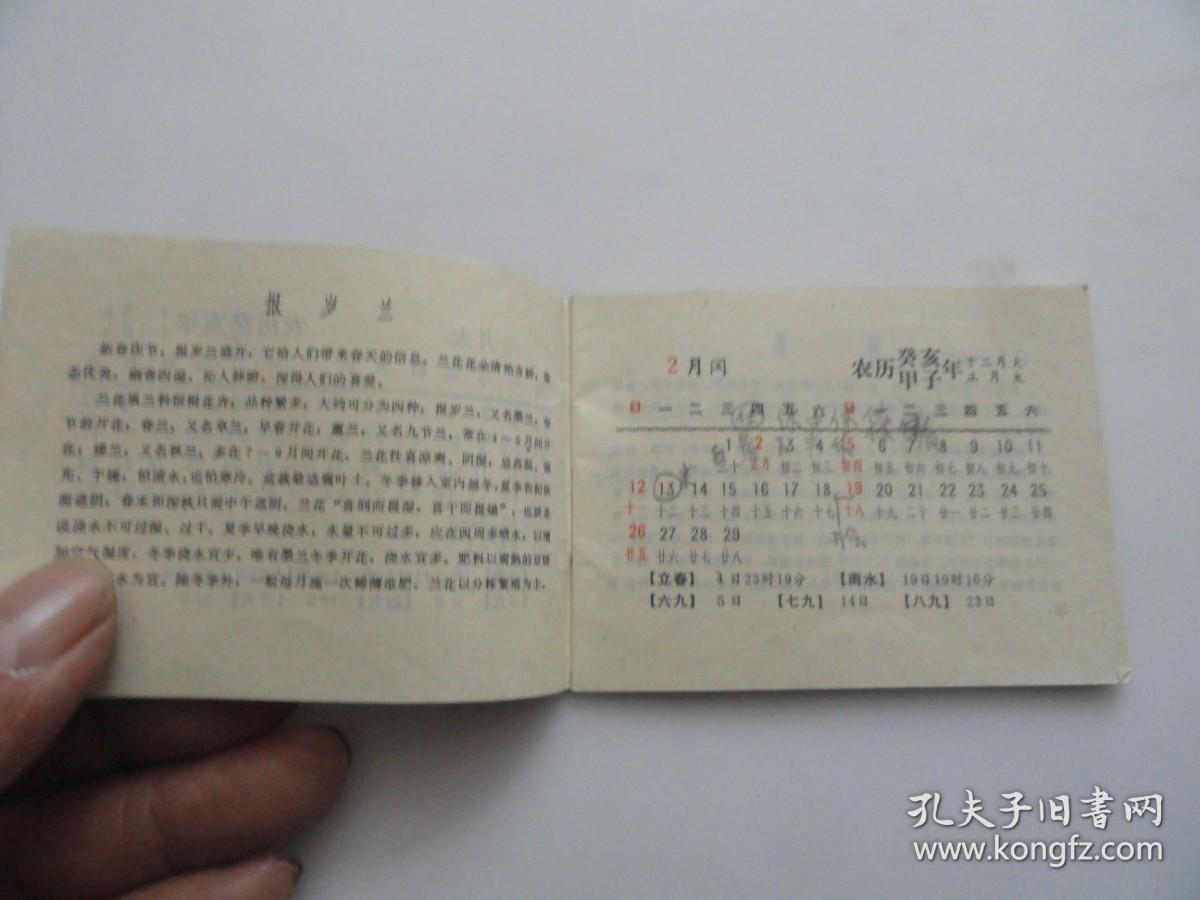 报岁兰
新春佳节，报岁兰盛开，它给人们带来春天的信息。兰花花朵清艳含娇，
态优美，幽香四溢，沁人肺腑，深得人们的喜爱。
兰花属兰科宿根花卉，品种繁多，大约可分为四种，报岁兰，又名墨兰，春
节前开花；春兰，又名草兰，早春开花；蕙兰，又名九节兰，常在4～5月间开
花；建兰，又名秋兰，多在7～9月间开花。兰花性喜凉爽、阴湿，忌高温、
光、干燥，怕渍水，也怕寒冷。盆栽最适腐叶土。冬季移入室内越冬，夏季和初秋
需遮阴，春末和深秋只需中午遮阴。兰花“喜润而畏湿，喜干而畏燥”，也就是
说浇水不可过湿、过干。夏季早晚浇水，水量不可过多，应在四周多喷水，以增
加空气湿度。冬季浇水宜少，唯有墨兰冬季开花，浇水宜多。肥料以腐熟的豆饼
水为宜，除冬季外，一般每月施一次稀薄液肥。兰花以分株繁殖为主。
2 月 闰
农历癸亥甲子年 十二月大 正月大
日 一 二 三 四 五 六 日 一 二 三 四 五 六
1 2 3 4 5 6 7 8 9 10 11
三十 正月 初二 初三 初四 初五 初六 初七 初八 初九 初十
12 13 14 15 16 17 18 19 20 21 22 23 24 25
十一 十二 十三 十四 十五 十六 十七 十八 十九 二十 廿一 廿二 廿三 廿四
26 27 28 29
廿五 廿六 廿七 廿八
【立春】 4日23时19分 【雨水】 19日19时16分
【六九】 5日 【七九】 14日 【八九】 23日
孔夫子旧书网
www.kongfz.com